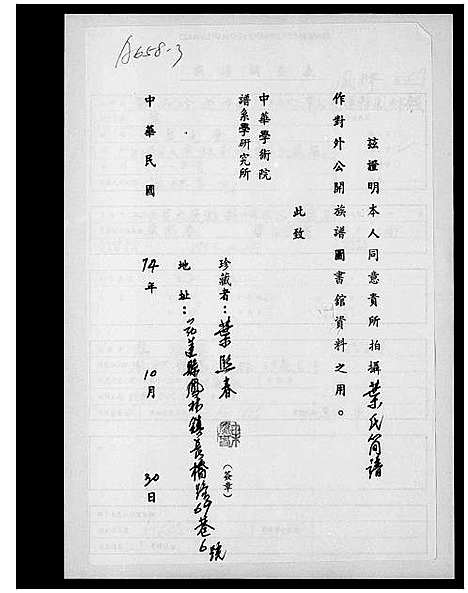 A658-3
茲證明本人同意貴所拍攝葉氏簡譜
作對外公開族譜圖書館資料之用。
此致
中華學術院
譜系學研究所
珍藏者：葉熙春（簽章）
地址：花蓮縣鳳林鎮長橋路69巷6號
中華民國74年10月30日